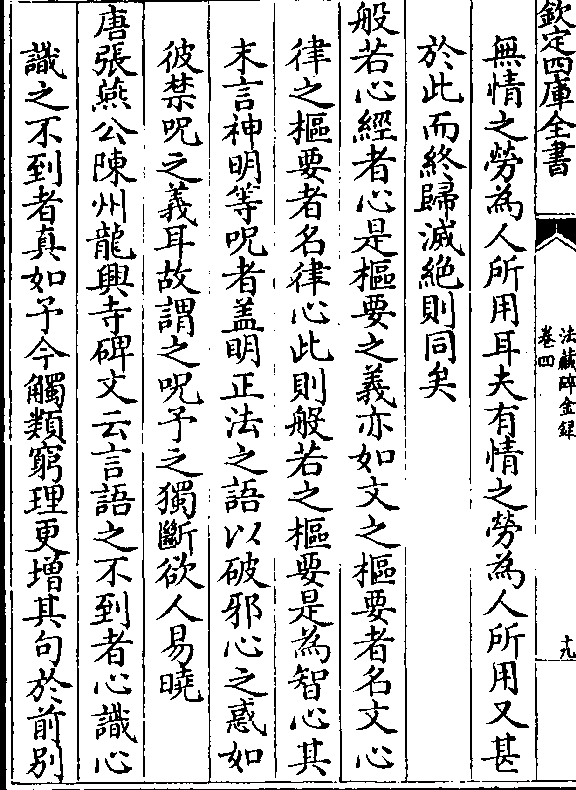 欽定四庫全書
法藏碎金録
卷四
十九
無情之勞為人所用耳夫有情之勞為人所用又甚
於此而終歸滅絶則同矣
般若心經者心是樞要之義亦如文之樞要者名文心
律之樞要者名律心此則般若之樞要是為智心其
末言神明等呪者盖明正法之語以破邪心之惑如
彼禁呪之義耳故謂之呪予之獨斷欲人易曉
唐張燕公陳州龍興寺碑文云言語之不到者心識心
識之不到者真如予今觸類窮理更增其句於前別